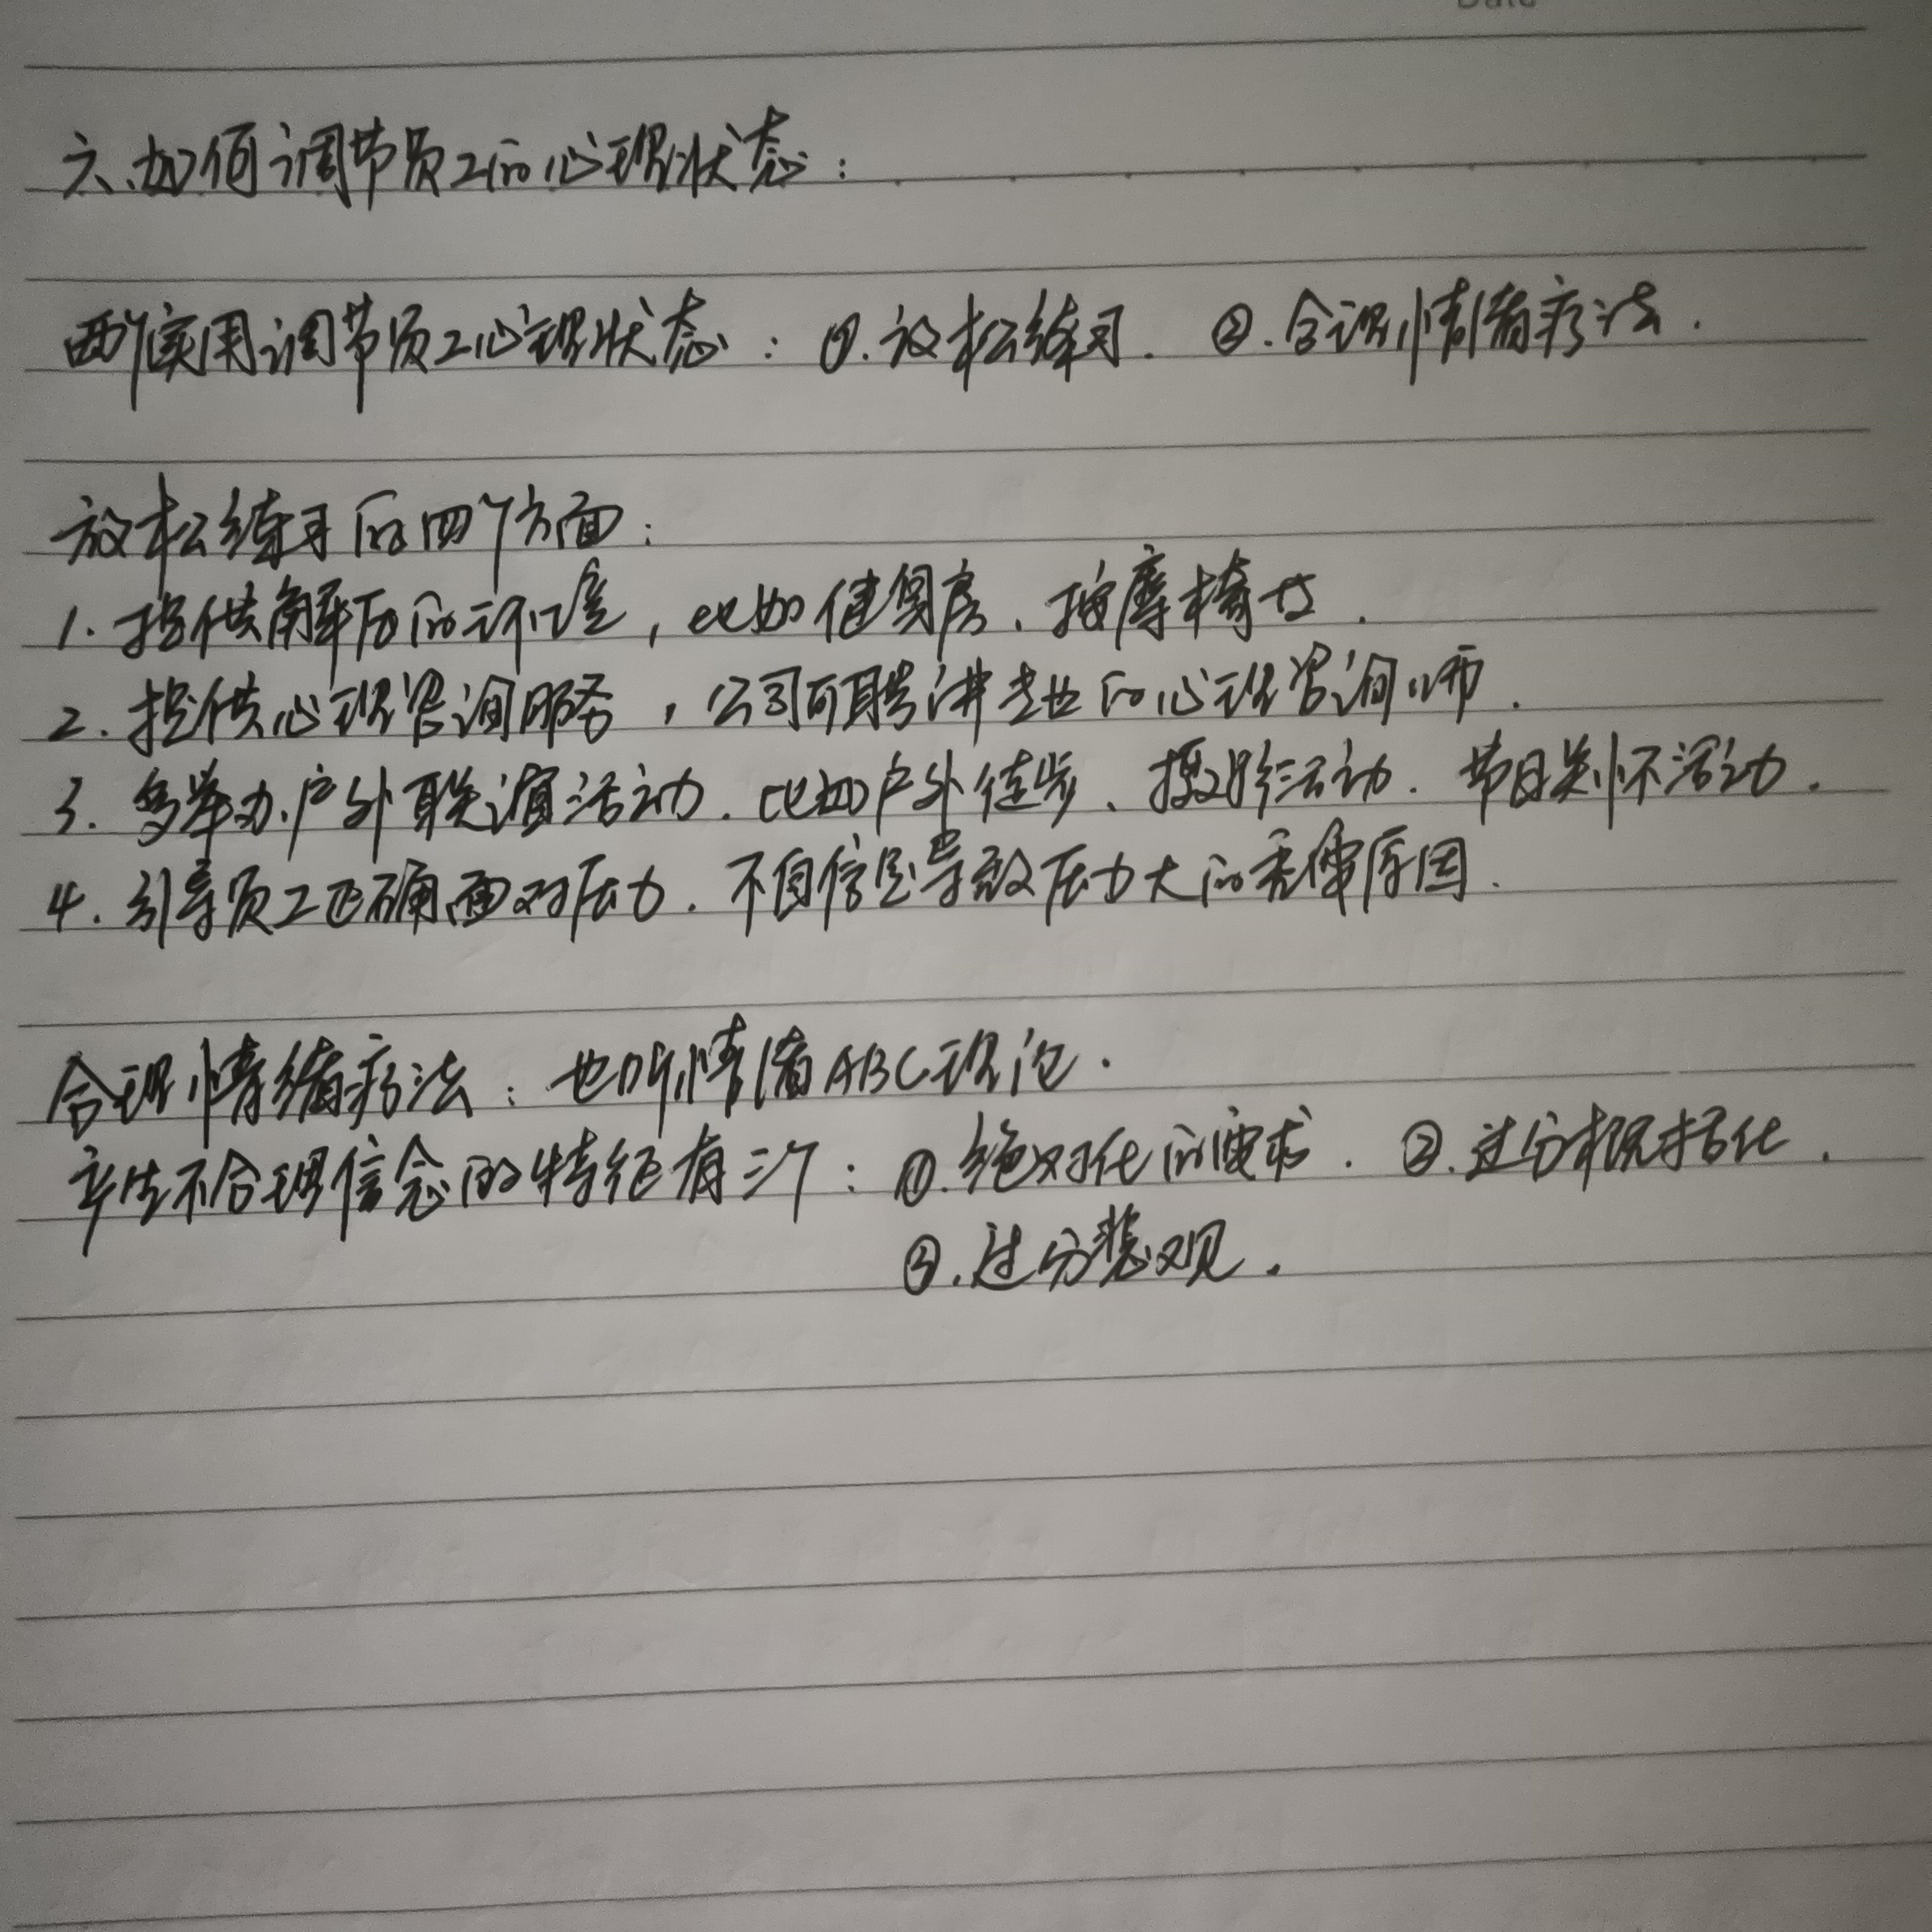 Date
六、如何调节员工的心理状态：
两个实用调节员工心理状态：①.放松练习. ②.合理情绪疗法.
放松练习的四个方面：
1. 提供解压的设施，比如健身房、按摩椅等.
2. 提供心理咨询服务，公司可聘请专业的心理咨询师.
3. 多举办户外联谊活动. 比如户外徒步、摄影活动. 节日关怀活动.
4. 引导员工正确面对压力. 不自信是导致压力大的重要原因.
合理情绪疗法：也叫情绪ABC理论.
产生不合理信念的特征有三个：①.绝对化的要求. ②.过分概括化.
③.过分悲观.